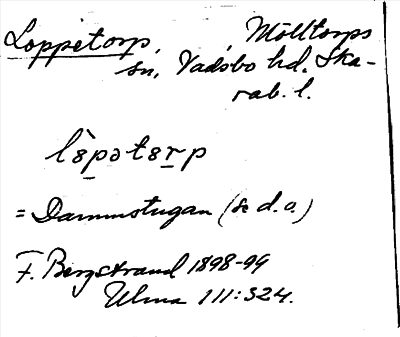 Loppetorp, , Mölltorps
sn, Vadsbo hd. Ska-
rab. l.
lɞ̀pətɞrp
= Dammstugan (se d.o.)
F. Bergstrand 1898-99
Ulma 111:324.